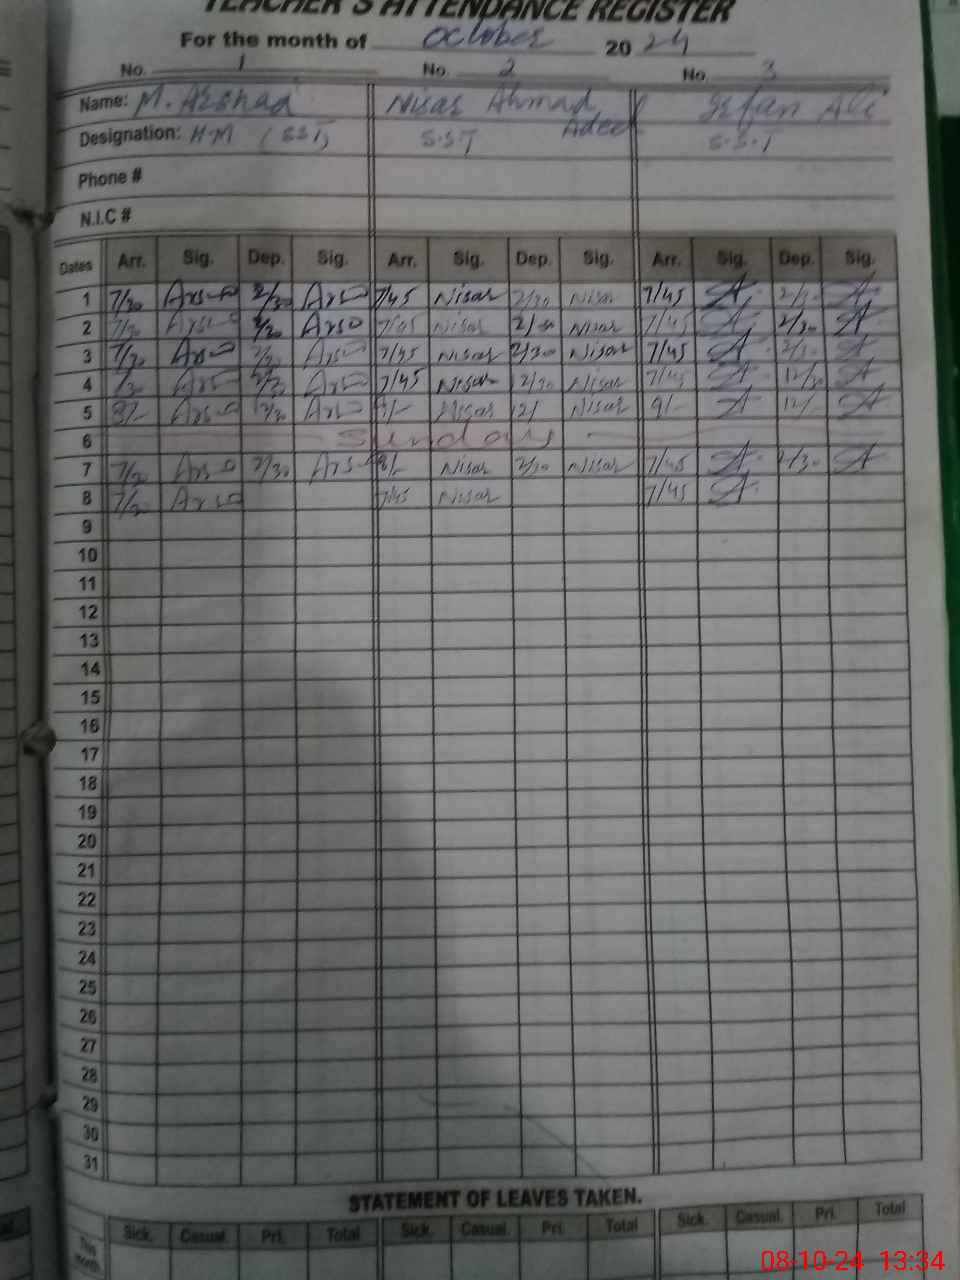 TEACHER'S ATTENDANCE REGISTER
For the month of October 20 24
No. 1 No. 2 No. 3
Name: M. Arshad Nisar Ahmad Adeel Irfan Ali
Designation: H.M (SST) S.S.T S.S.T
Phone #
N.I.C #
Dates Arr. Sig. Dep. Sig. Arr. Sig. Dep. Sig. Arr. Sig. Dep. Sig.
1 7/30 2/30 7/45 Nisar 2/30 Nisar 7/45 2/30
2 7/30 2/30 7/45 Nisar 2/30 Nisar 7/45 2/30
3 7/30 2/30 7/45 Nisar 2/30 Nisar 7/45 2/30
4 7/30 7/45 Nisar 12/30 Nisar 7/45 12/30
5 Nisar 12/ Nisar 9/- 12/-
6 Sunday
7 7/30 2/30 8/- Nisar 2/30 Nisar 7/45 2/30
8 7/30 7/45 Nisar 7/45
9
10
11
12
13
14
15
16
17
18
19
20
21
22
23
24
25
26
27
28
29
30
31
STATEMENT OF LEAVES TAKEN.
Sick. Casual. Pri. Total Sick. Casual. Pri. Total Sick. Casual. Pri. Total
This month.
08-10-24 13:34